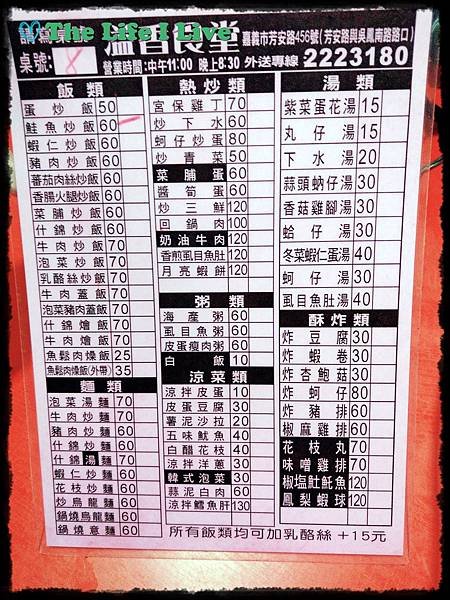 The Life I Live
溫習食堂
嘉義市芳安路456號(芳安路與吳鳳南路路口)
桌號: 8
營業時間:中午11:00 晚上8:30 外送專線 2223180
飯類
蛋炒飯 50
鮭魚炒飯 60
蝦仁炒飯 60
豬肉炒飯 60
蕃茄肉絲炒飯 60
香腸火腿炒飯 60
菜脯炒飯 60
什錦炒飯 60
牛肉炒飯 70
泡菜炒飯 70
乳酪絲炒飯 70
牛肉蓋飯 70
泡菜豬肉蓋飯 70
什錦燴飯 70
牛肉燴飯 70
魚鬆肉燥飯 25
魚鬆肉燥飯(外帶) 35
麵類
泡菜湯麵 70
牛肉炒麵 70
豬肉炒麵 60
什錦炒麵 60
什錦湯麵 70
蝦仁炒麵 60
花枝炒麵 60
炒烏龍麵 60
鍋燒烏龍麵 60
鍋燒意麵 60
熱炒類
宮保雞丁 70
炒下水 60
蚵仔炒蛋 80
炒青菜 50
菜脯蛋 60
醬筍蛋 60
炒三鮮 120
回鍋肉 100
奶油牛肉 120
香煎虱目魚肚 120
月亮蝦餅 120
粥類
海產粥 60
虱目魚粥 60
皮蛋瘦肉粥 60
白飯 10
涼菜類
涼拌皮蛋 10
皮蛋豆腐 30
薯泥沙拉 20
五味魷魚 40
白醋花枝 40
涼拌洋蔥 30
韓式泡菜 30
蒜泥白肉 60
涼拌鱈魚肝 130
湯類
紫菜蛋花湯 15
丸仔湯 15
下水湯 20
蒜頭蚋仔湯 30
香菇雞腳湯 30
蛤仔湯 30
冬菜蝦仁蛋湯 40
蚵仔湯 30
虱目魚肚湯 40
酥炸類
炸豆腐 30
炸蝦卷 30
炸杏鮑菇 50
炸蚵仔 80
炸豬排 60
椒麻雞排 60
花枝丸 70
味噌雞排 70
椒塩魠魚 120
鳳梨蝦球 120
所有飯類均可加乳酪絲 +15元